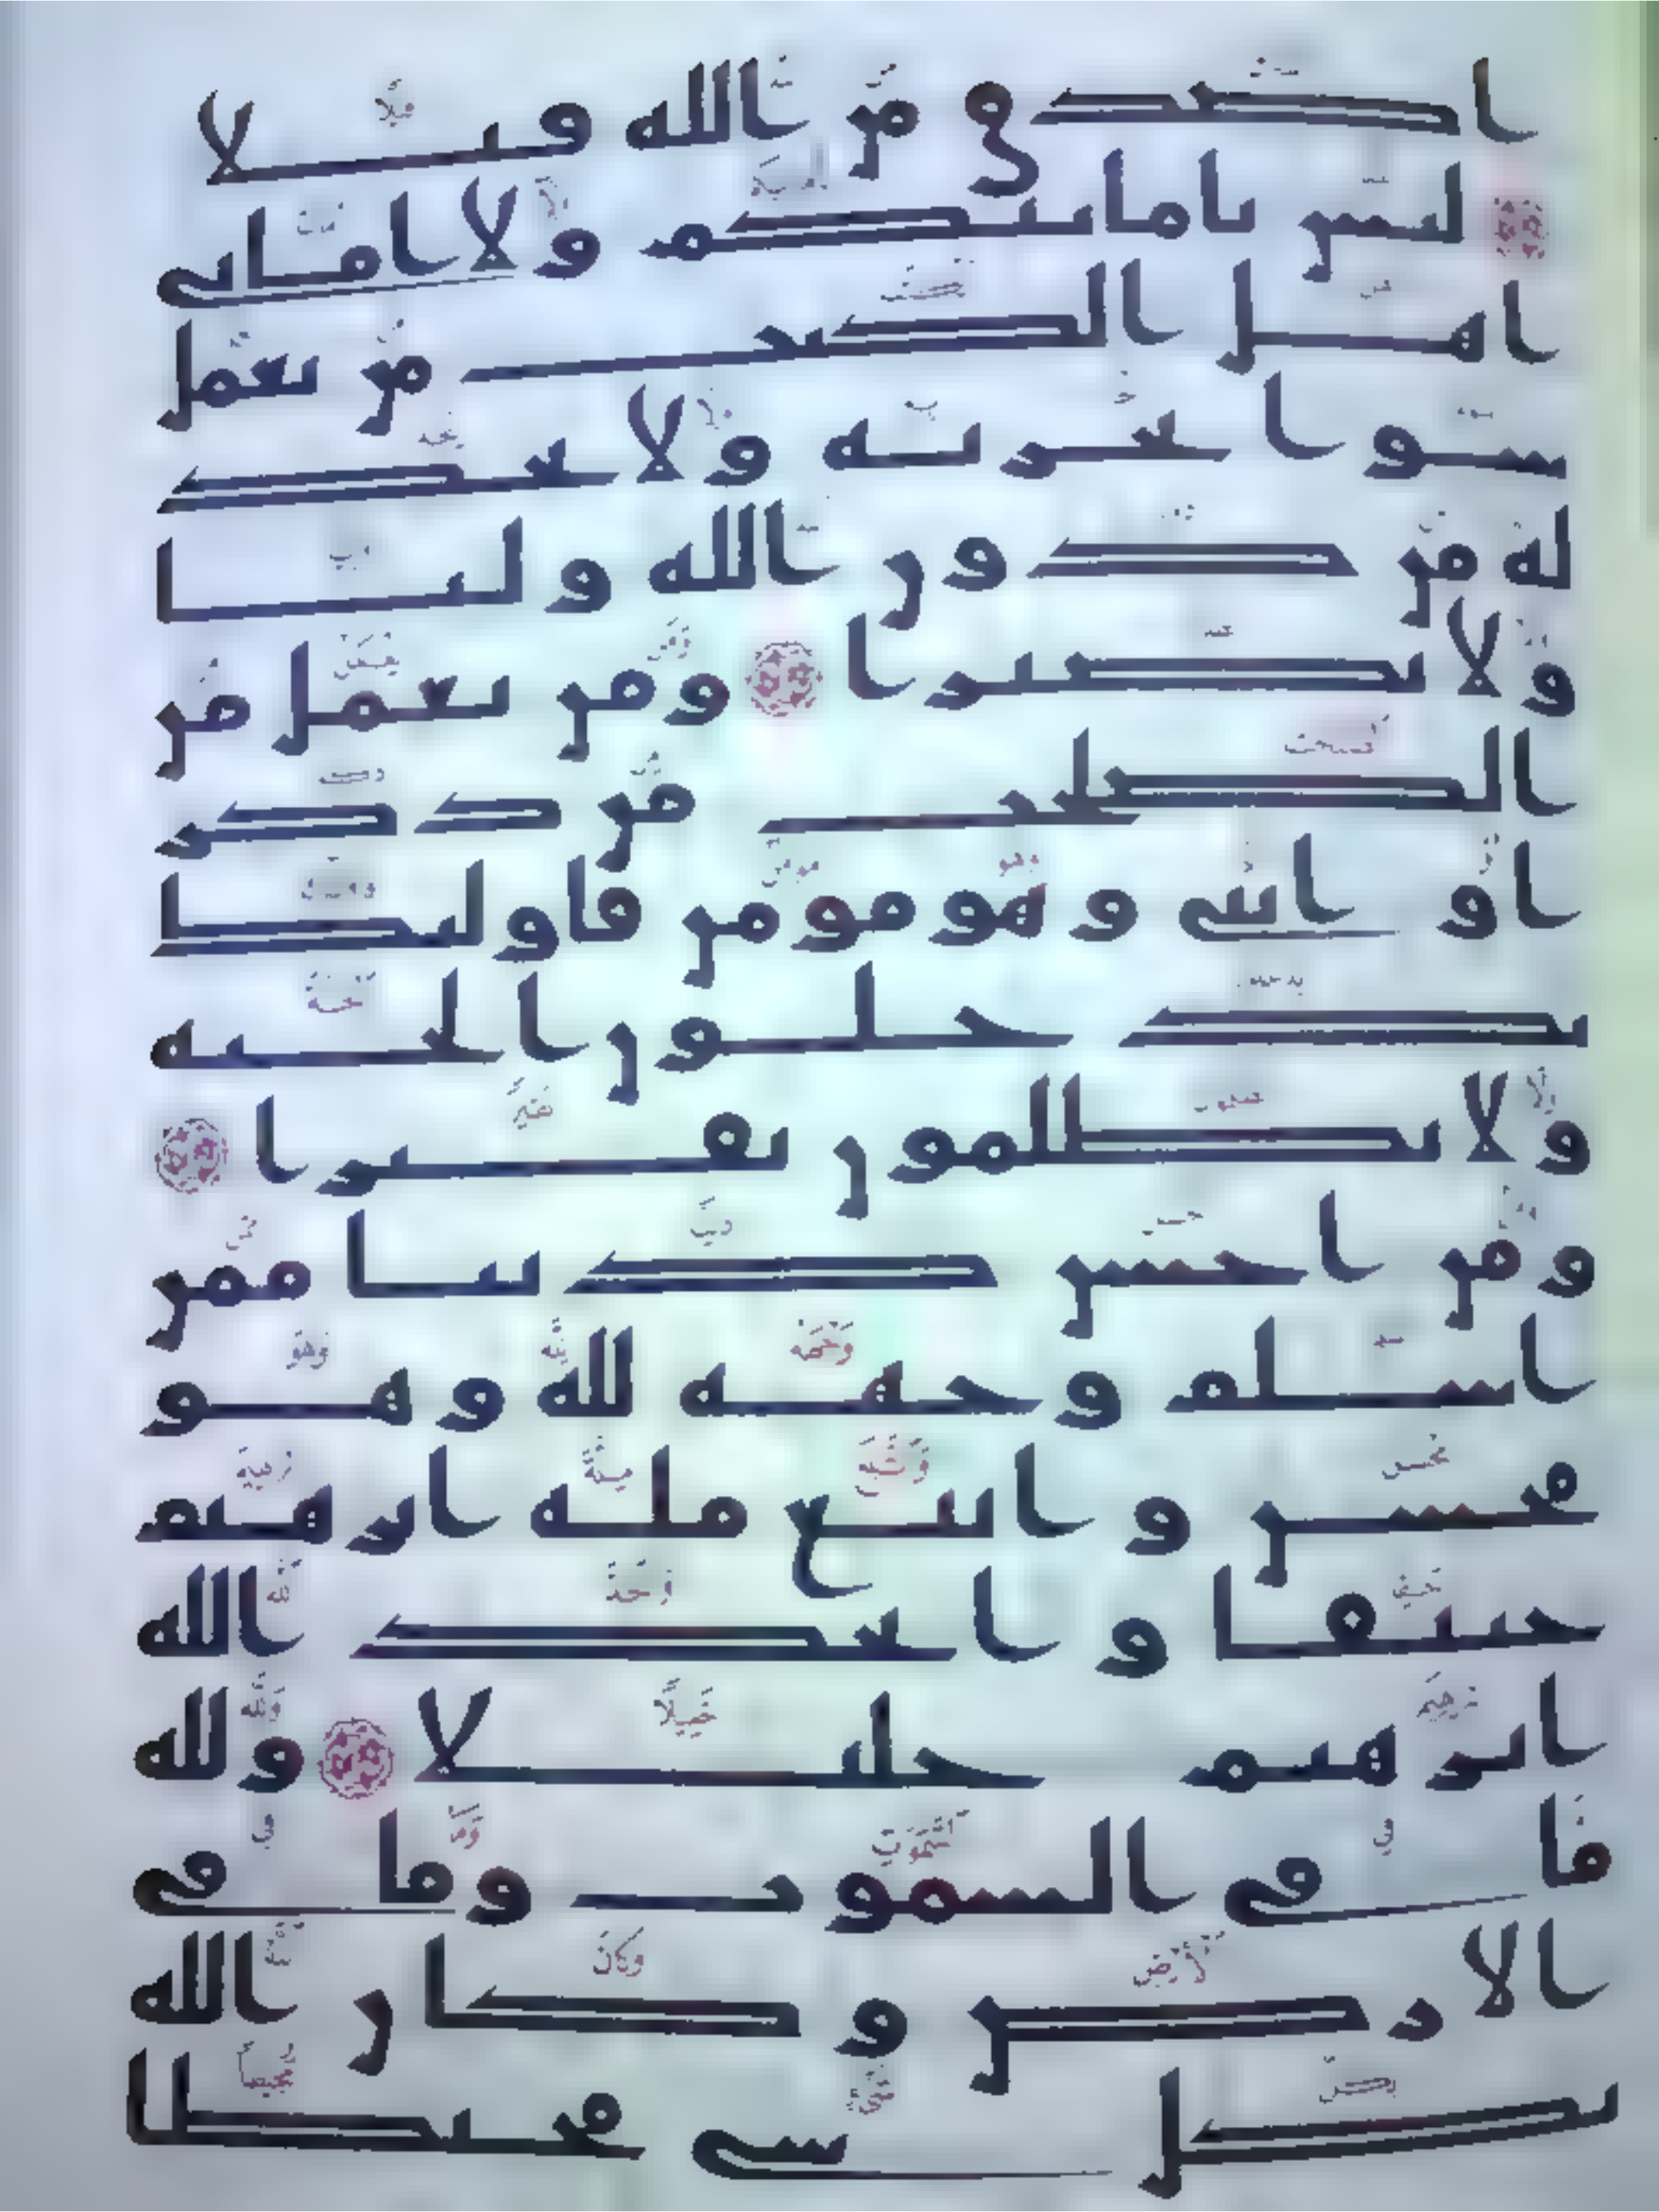 اصدق من الله قيلا
ليس بامانيكم ولا اماني
اهل الكتب من يعمل
سوا يجز به ولا يجد
له من دون الله وليا
ولا نصيرا ومن يعمل من
الصلحت من ذكر
او انثى وهو مومن فاوليك
يدخلون الجنه
ولا يظلمون نقيرا
ومن احسن دينا ممن
اسلم وجهه لله وهو
محسن واتبع مله ابرهيم
حنيفا واتخذ الله
ابرهيم خليلا ولله
ما في السموت وما في
الارض وكان الله
بكل شي محيطا